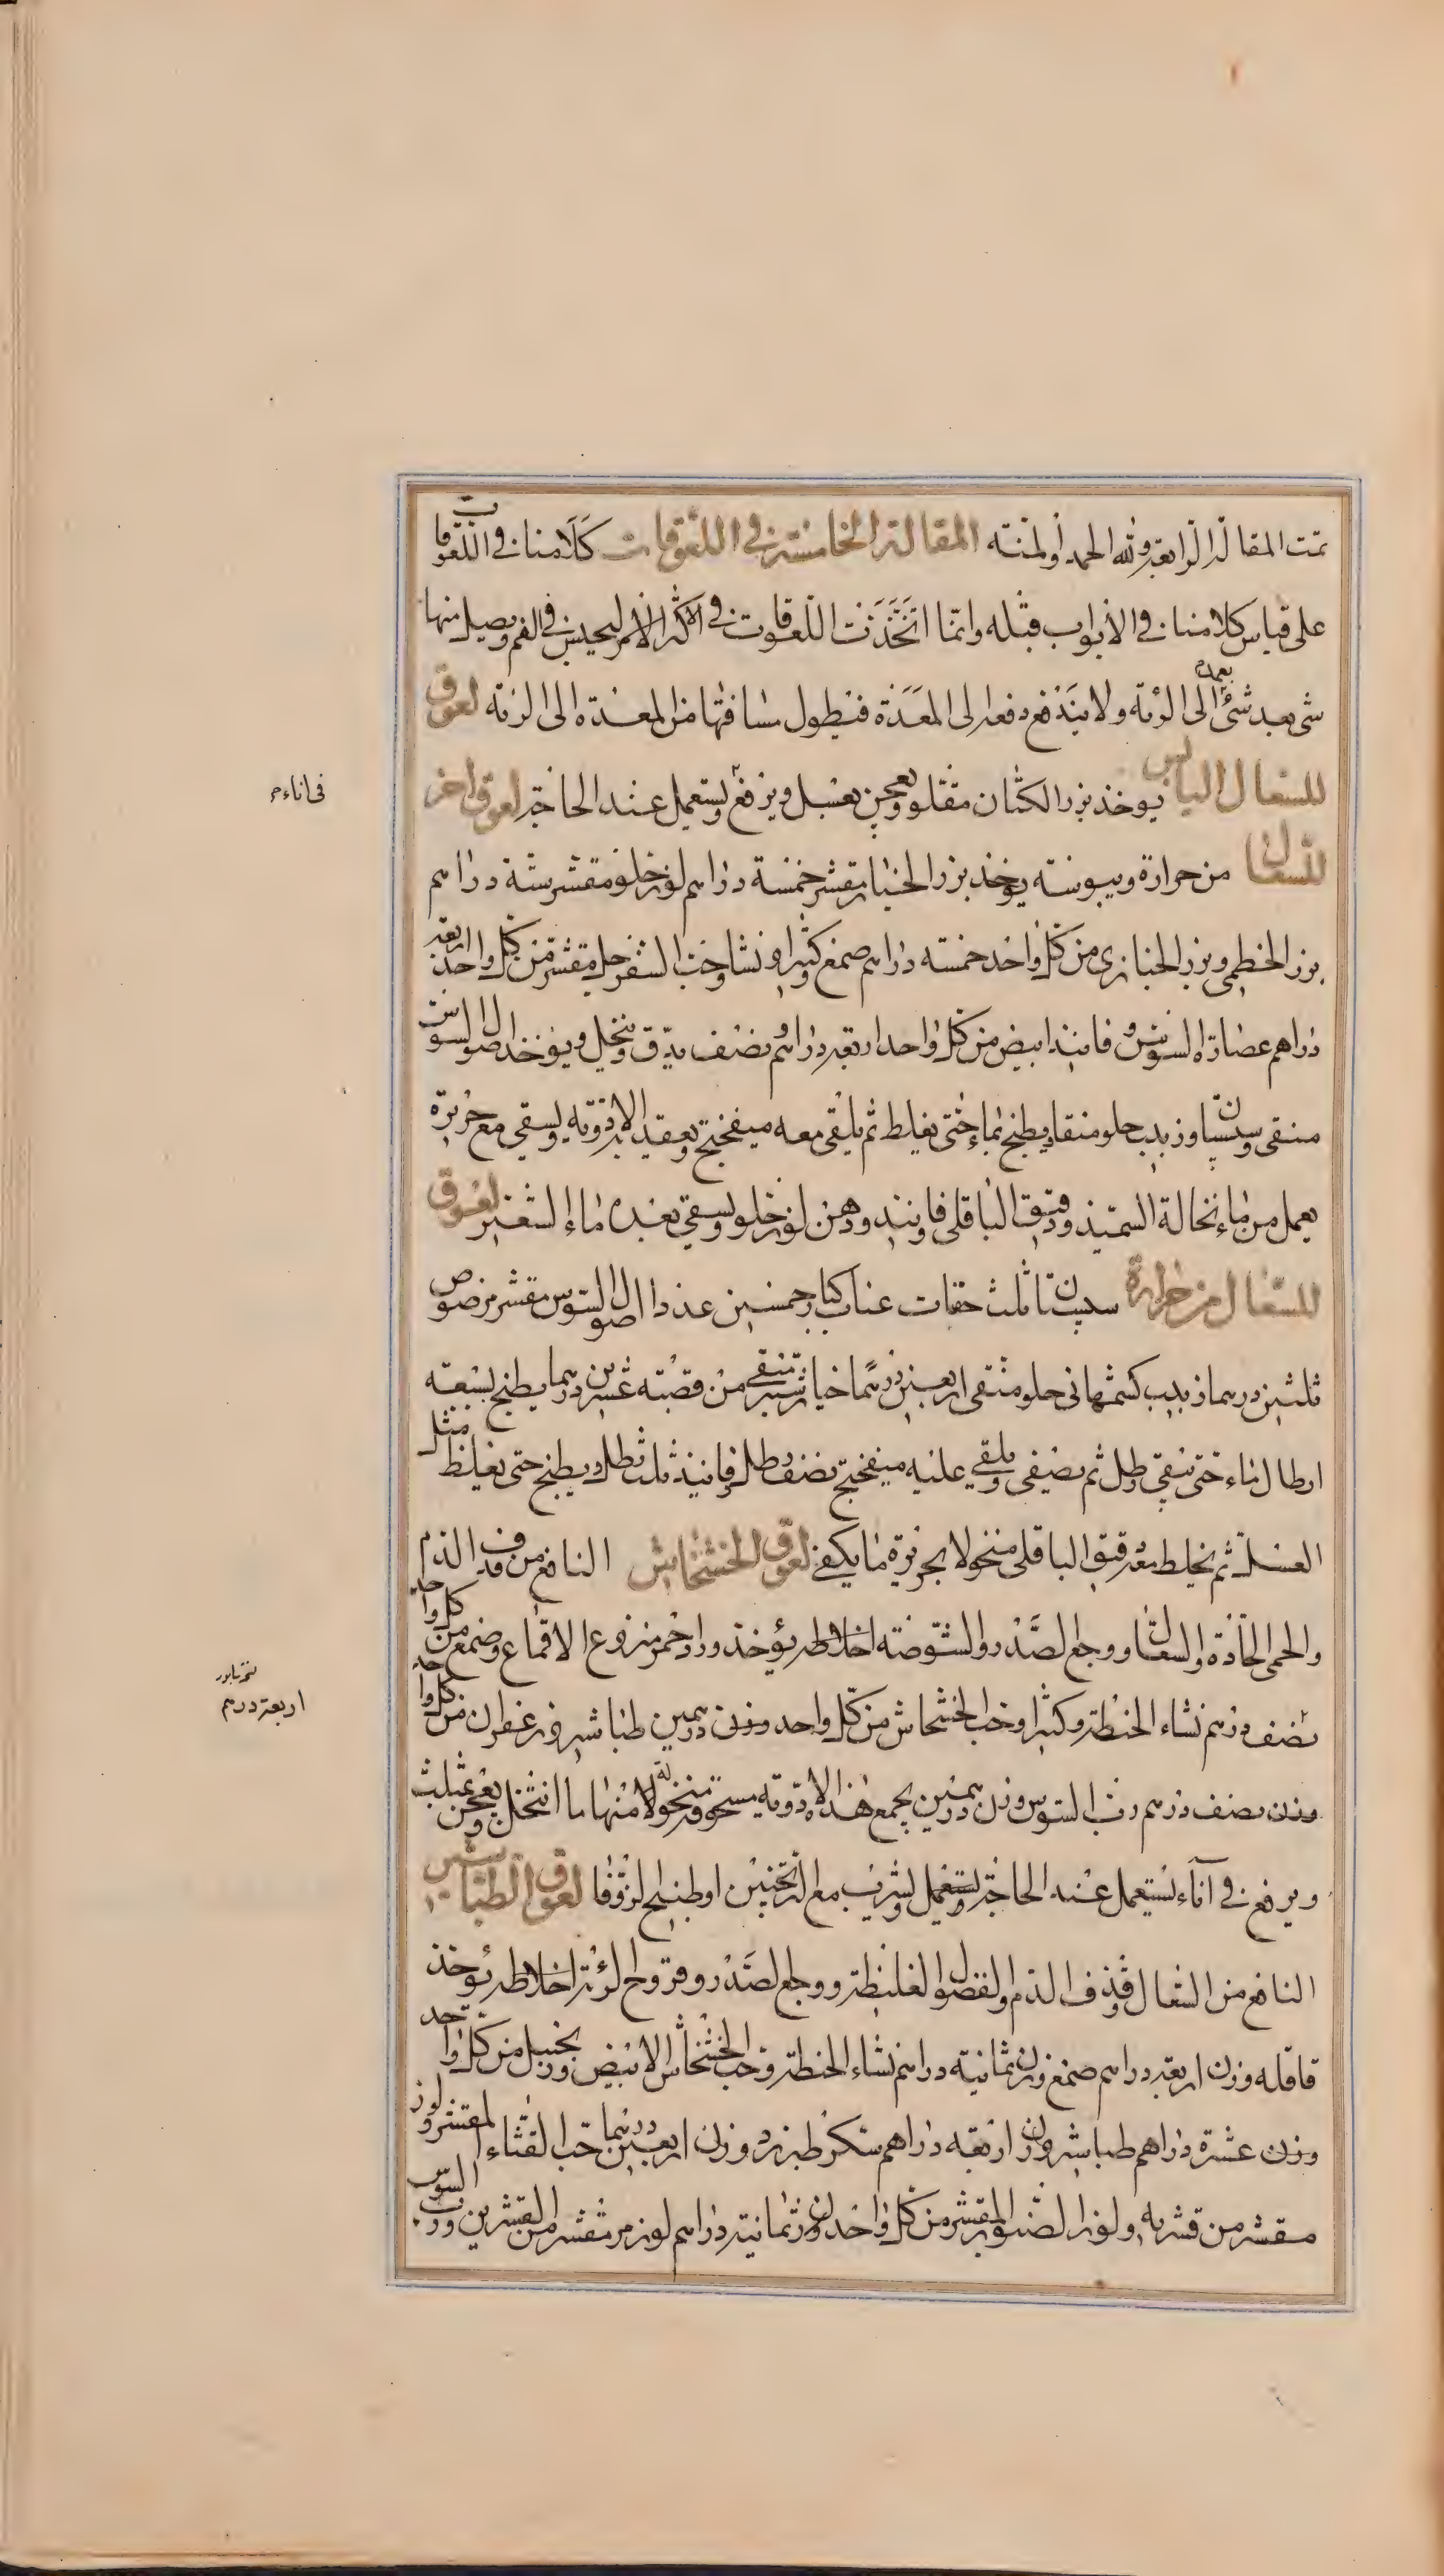 تمت المقالة الرابعة ولله الحمد والمنة المقالة الخامسة في اللعوقات كلامنا في اللعوقات
على قياس كلامنا في الأبواب قبله وانما اتخذت اللعوقات في الاكثر الامر ليحبس في الفم ويصل منها
شئ بعد شئ الى الرئة ولا يندفع دفعة الى المعدة فيطول مسافتها من المعدة الى الرئة لعوق
للسعال اليابس يوخذ بزر الكتان مقلو ويعجن بعسل ويرفع ويستعمل عند الحاجة لعوق اخر
فى اناء م
للسعال من حرارة ويبوسة يوخذ بزر الخيار مقشر خمسة دراهم لوز حلو مقشر ستة دراهم
بزر الخطمي وبزر الخبازى من كل واحد خمسة دراهم صمغ كثيرا ونشا وحب السفرجل مقشر من كل واحد اربعة
دراهم عصارة السوس وفانيذ ابيض من كل واحد اربعة دراهم ونصف يدق وينخل ويوخذ اصول السوس
منقى وسبستان وزبيب حلو منقا ويطبخ بماء حتى يغلظ ثم يلقى معه ميفختج ويعقد الادوية ويسقى مع حريرة
يعمل من ماء نخالة السميذ ودقيق الباقلى فانيذ ودهن لوز حلو ويسقى بعده ماء الشعير لعوق
للسعال من حرارة سبستان ثلث حفنات عناب كبار خمسين عددا اصول السوس مقشر مرضوض
ثلثين درهما زبيب كشمهانى حلو منقى اربعين درهما خيار شنبر منقى من قصبه عشرين درهما يطبخ بسبعة
ارطال ماء حتى يبقى رطل ثم يصفى ويلقى عليه ميفختج نصف رطل فانيذ ثلث رطل ويطبخ حتى يغلظ مثل
العسل ثم يخلط معه دقيق الباقلى منخولا بحريرة ما يكفى لعوق الخشخاش النافع من قذف الدم
والحمى الحادة والسعال ووجع الصدر والشوصة اخلاطه يؤخذ ورد احمر منزوع الاقماع وصمغ من كل واحد
نصف درهم نشاء الحنطة وكثيرا وحب الخشخاش من كل واحد وزن درهمين طباشير وزعفران من كل واحد
اربعة درهم
وزن نصف درهم رب السوس وزن درهمين يجمع هذه الادوية مسحوقة منخولة منها ما انتخل ويعجن بمثلث
ويرفع في اناء يستعمل عند الحاجة ويستعمل ويشرب مع الترنجبين او طبيخ الزوفا لعوق الطباشير
النافع من السعال وقذف الدم والفضول الغليظة ووجع الصدر وقروح الرئة اخلاطه يؤخذ
قاقله وزن اربعة دراهم صمغ وزن ثمانية دراهم نشاء الحنطة وحب الخشخاش الابيض وزنجبيل من كل واحد
وزن عشرة دراهم طباشير وزن اربعة دراهم سكر طبرزد وزن اربعين درهما حب القثاء المقشر ولوز
مقشر من قشريه ولوز الصنوبر المقشر من كل واحد وزن ثمانية دراهم لوز مر مقشر من القشرين ورب السوس